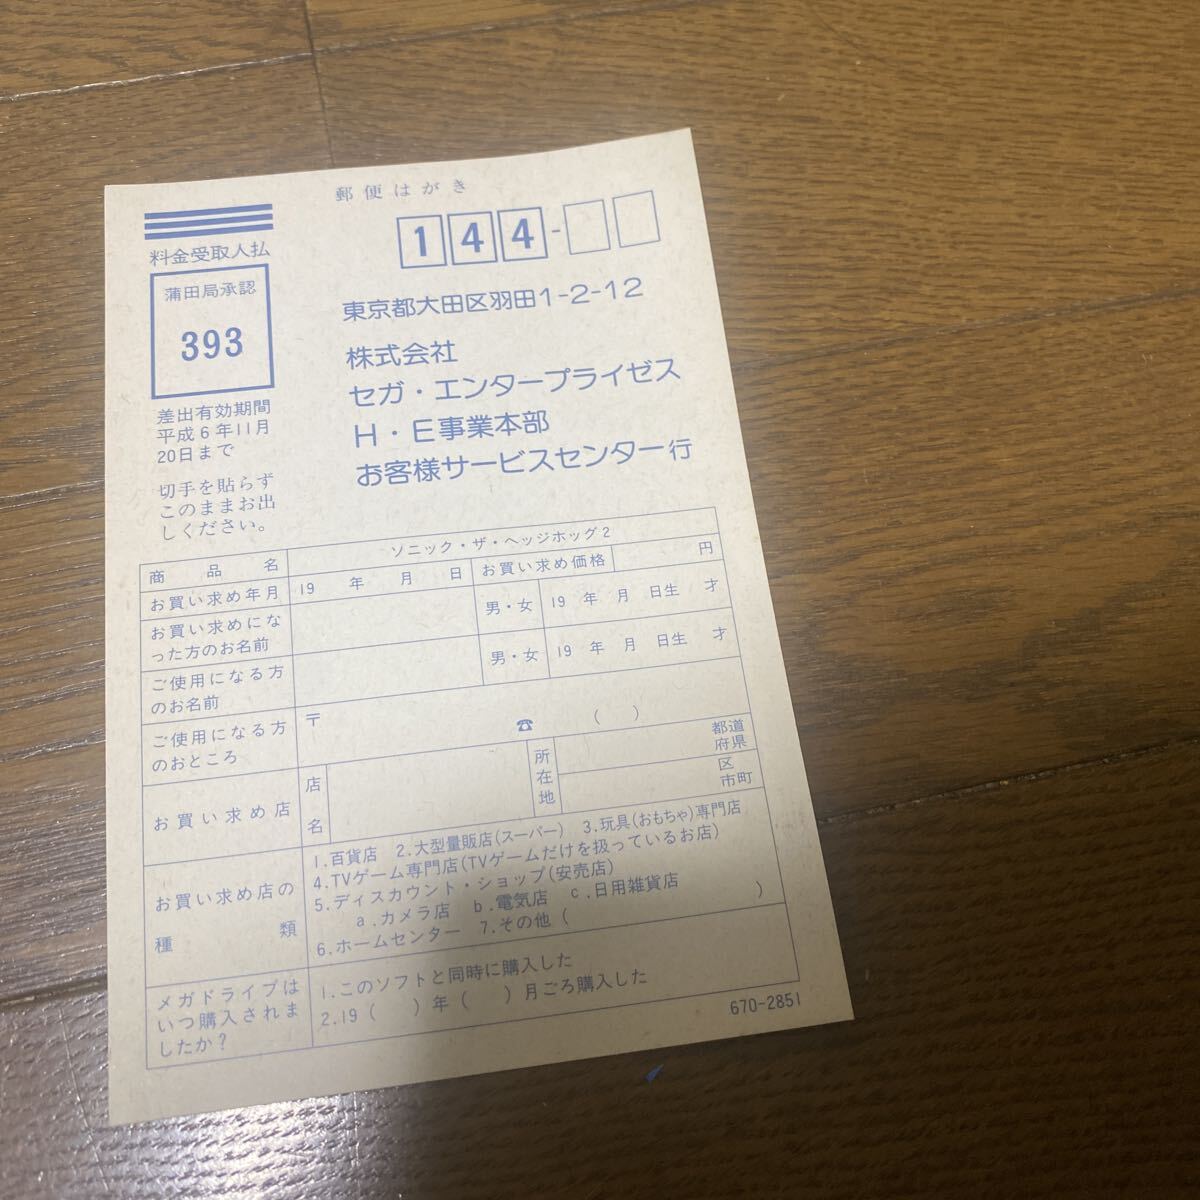 郵便はがき
料金受取人払
蒲田局承認
393
差出有効期間
平成6年11月
20日まで
切手を貼らず
このままお出
しください。
144-
東京都大田区羽田1-2-12
株式会社
セガ・エンタープライゼス
H・E事業本部
お客様サービスセンター行
商品名 ソニック・ザ・ヘッジホッグ2
お買い求め年月 19 年 月 日 お買い求め価格 円
お買い求めにな
った方のお名前
男・女 19 年 月 日生 才
ご使用になる方
のお名前
男・女 19 年 月 日生 才
ご使用になる方
のおところ
〒 ☎ ( )
お買い求め店
店
名
所
在
地
都道
府県
区
市町
お買い求め店の
種類
1.百貨店 2.大型量販店(スーパー) 3.玩具(おもちゃ)専門店
4.TVゲーム専門店(TVゲームだけを扱っているお店)
5.ディスカウント・ショップ(安売店)
a.カメラ店 b.電気店 c.日用雑貨店
6.ホームセンター 7.その他( )
メガドライブは
いつ購入されま
したか?
1.このソフトと同時に購入した
2.19( )年( )月ごろ購入した
670-2851